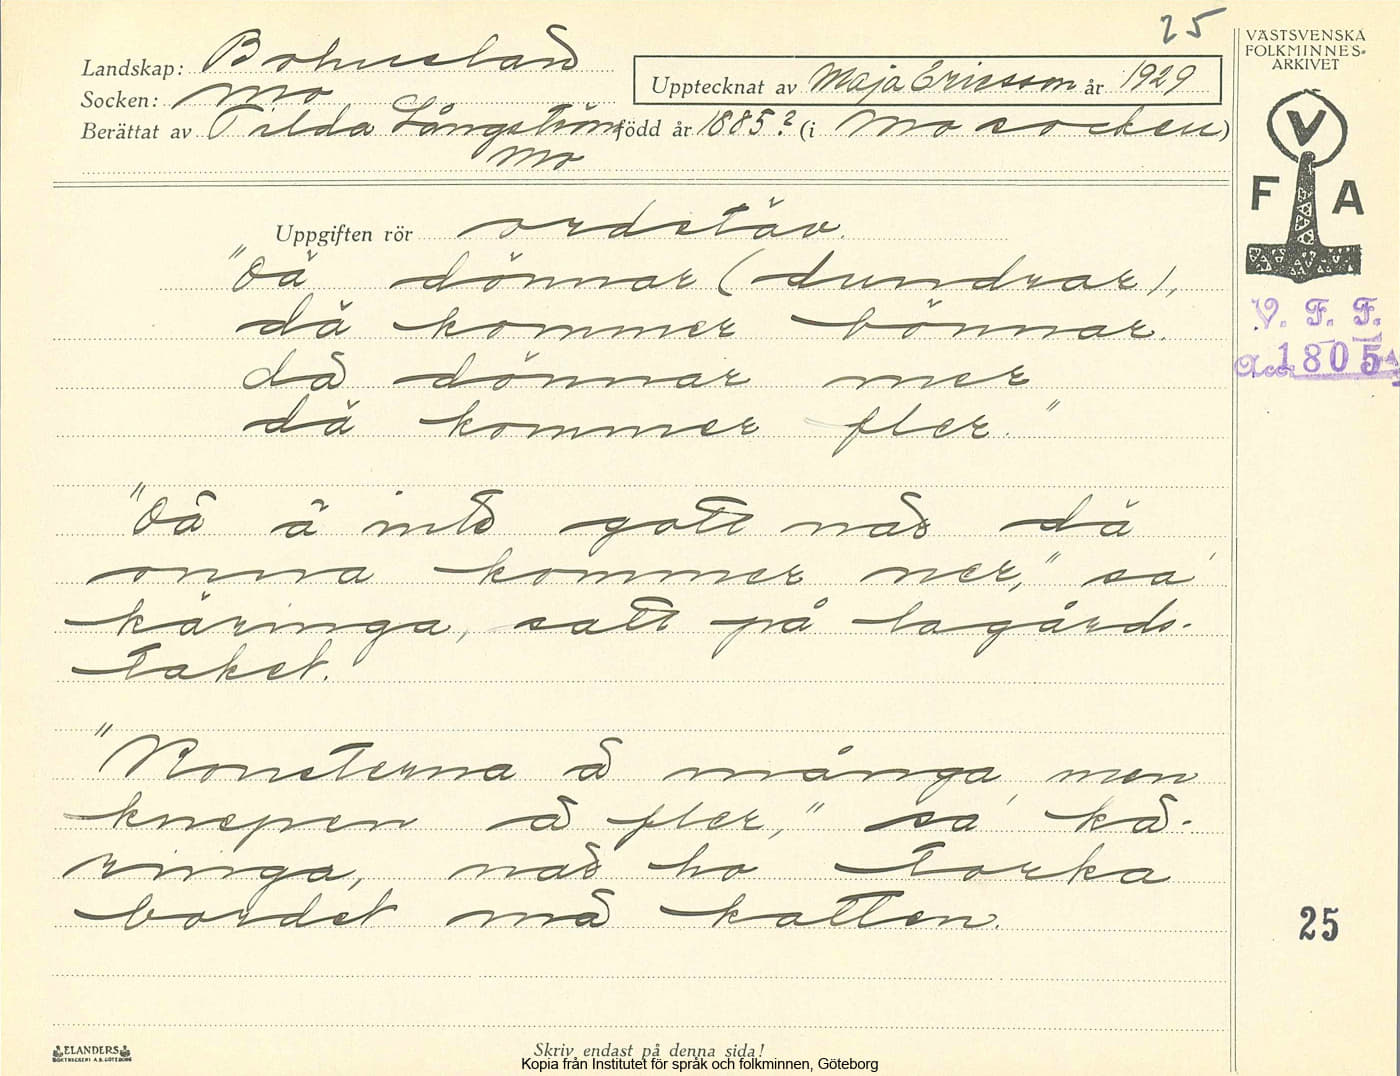 25
VÄSTSVENSKA
FOLKMINNES-
ARKIVET
Landskap: Bohuslän
Upptecknat av Maja Ericsson år 1929
Socken: Mo
Berättat av Tilda Långström född år 1885? (i Mo socken)
Mo
V
F A
Uppgiften rör ordstäv.
"Dä dönnar (dundrar),
då kommer bönnar.
dä dönnar mer
då kommer fler."
V. F. F.
Acc. 1805
"Dä ä inte gott när då
onna kommer ner," sa'
käringa, satt på lagårds-
taket.
"Konsterna ä många men
knepen ä fler," sa' kä-
ringa, när ho torka
bordet mä katten.
25
ELANDERS
BOKTRYCKERI A.B. GÖTEBORG
Skriv endast på denna sida!
Kopia från Institutet för språk och folkminnen, Göteborg